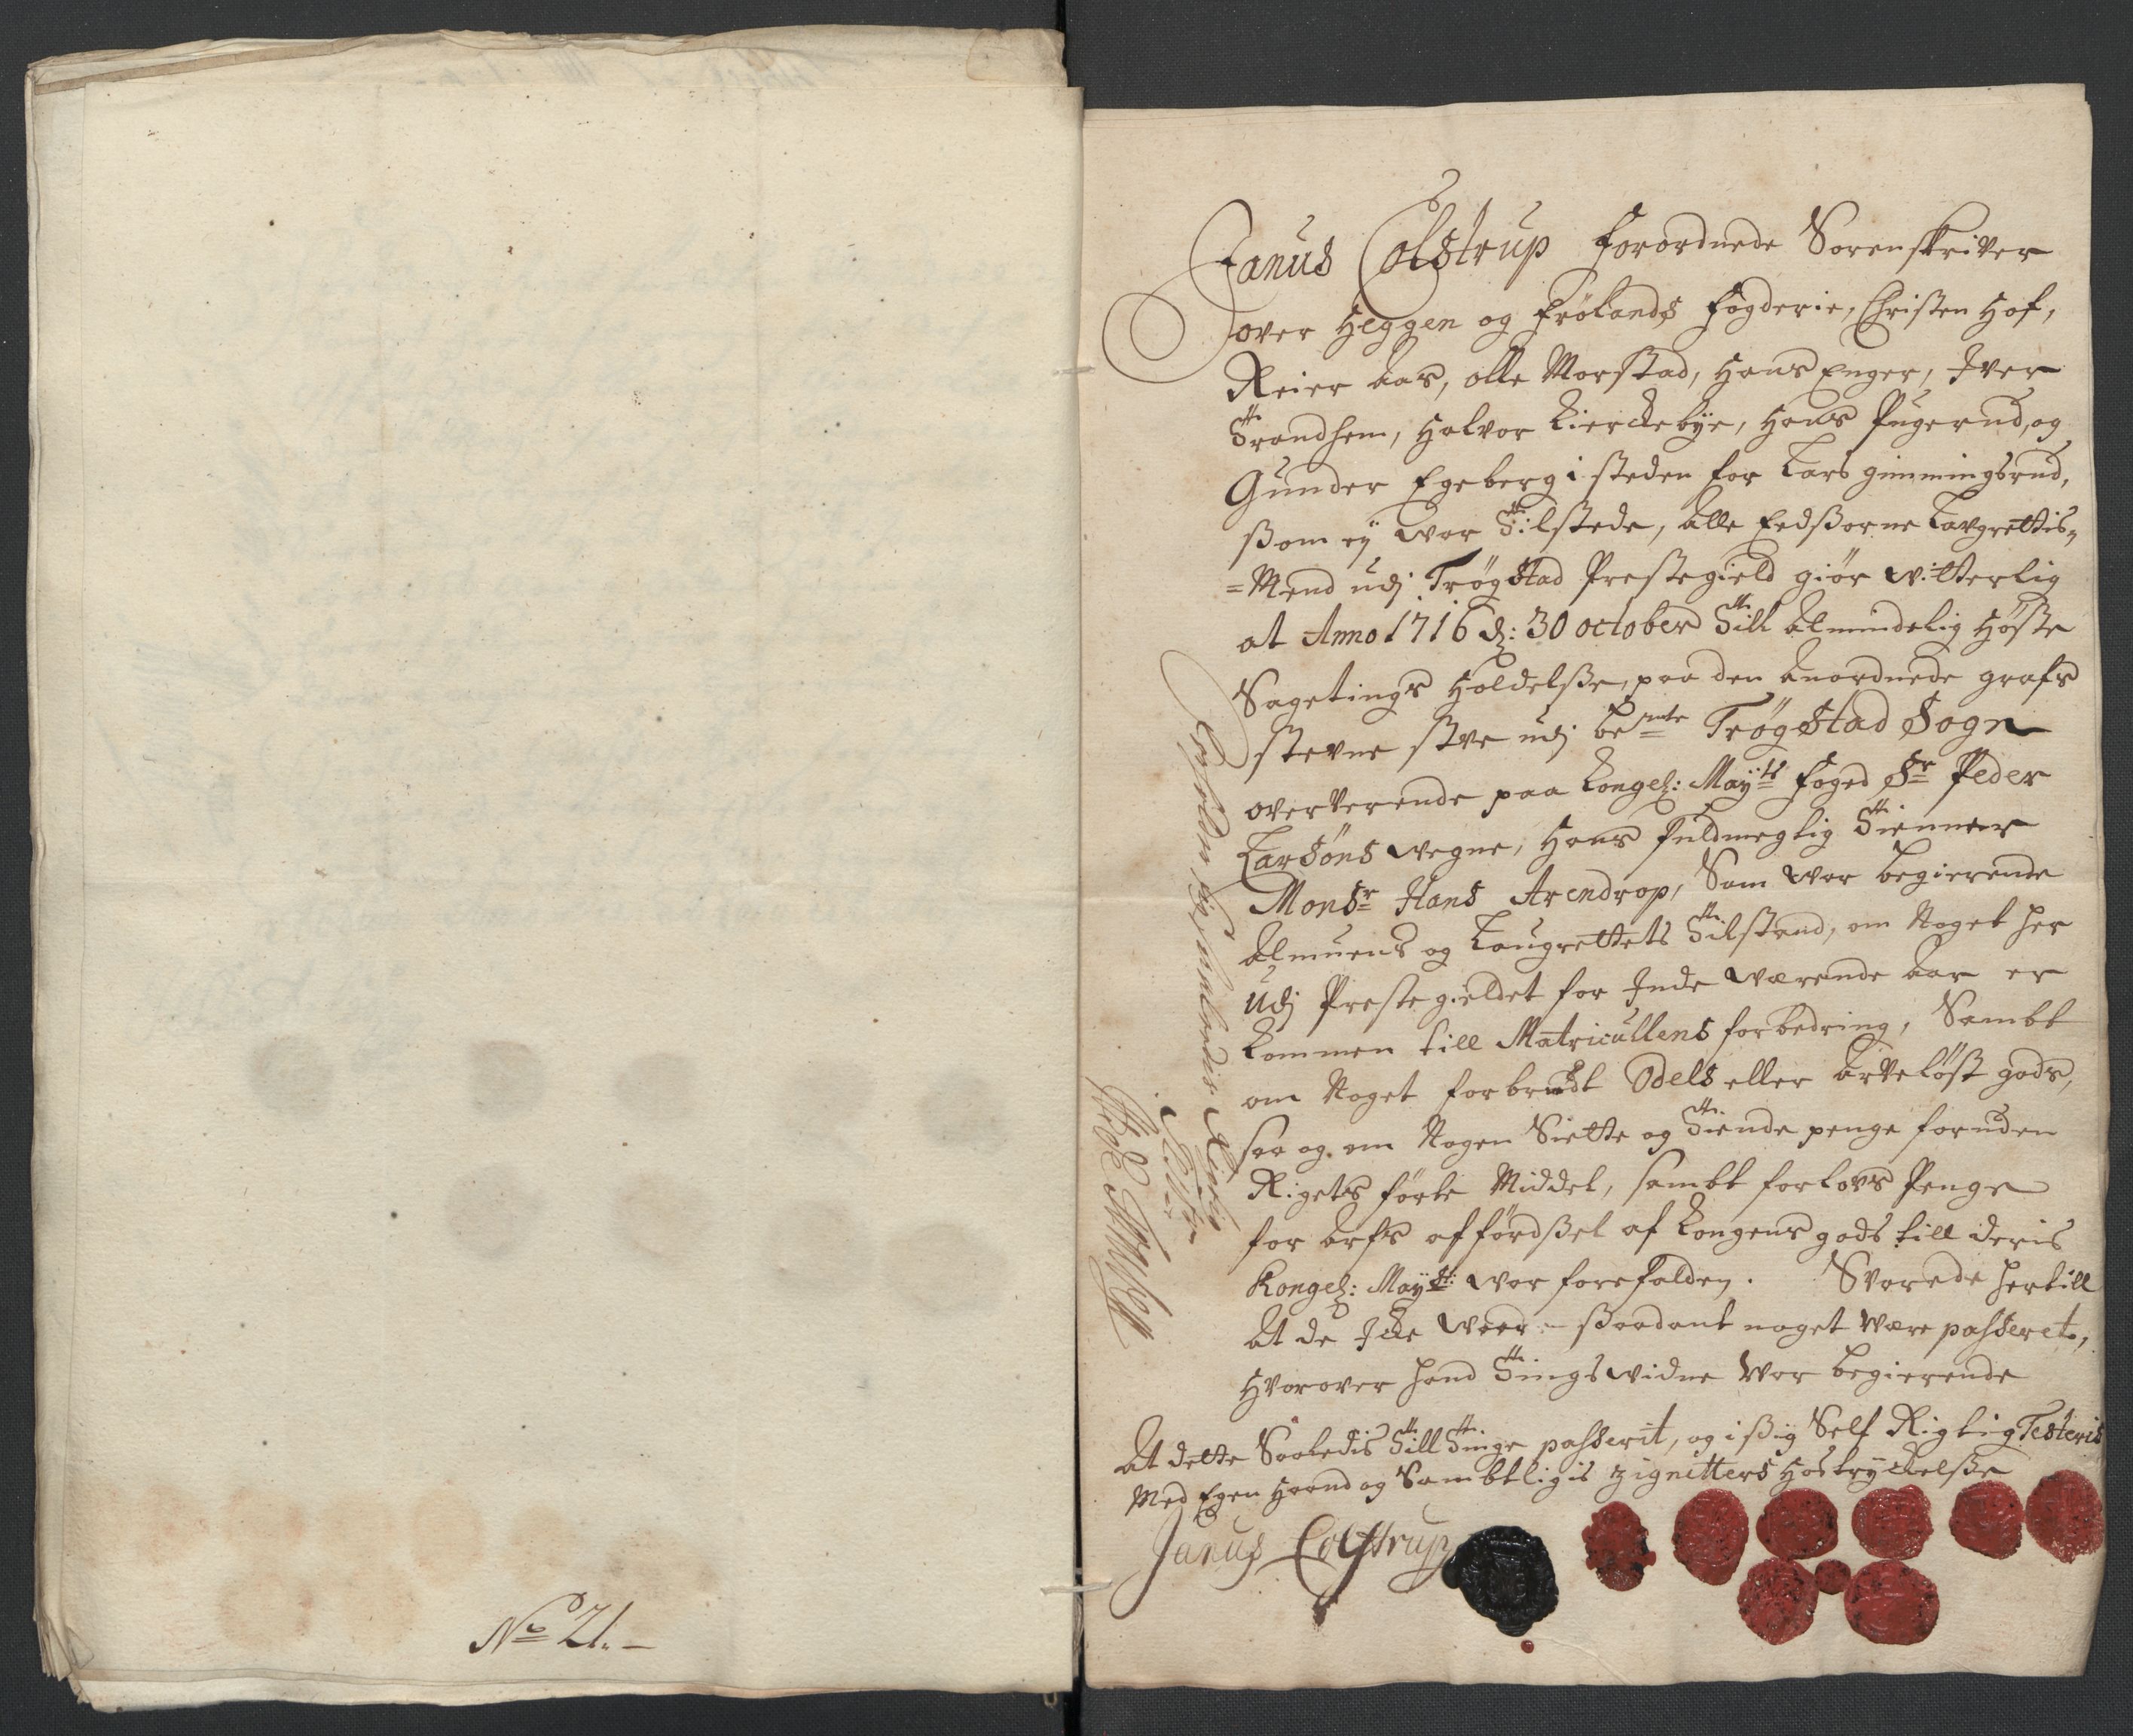 No 21.
Janus Colstrup Forordnede Sorenskriver
over Heggen og Frölands fogderie, Christen Hof,
Reier Aas, Olle Morstad, Hans Enger, Iver
Trandhem, Halvor Kierckebÿe, Hans Pugerud, og
Gunder Egeberg i steden for Lars gimmingsrud,
ßom eÿ war Tilstede, alle Eedßorne Laugrettis
=Mend udj Trøgstad Prestegield giör witterlig
at Anno 1716 d: 30 october Till Almindelig Höste
Sagetings Holdelße, paa den Anordnede grafs
stevne stue udj bemte Trøgstad Sogn
oververende paa Kongel: Mayts foged Sr Peder
Larsöns wegne, Hans fuldmegtig Tienner
Monsr Hans Arendrop, Som war begierende
Almuens og Laugrettets Tilstand, om Noget her
Udj Prestegieldet for Inde wærende Aar er
kommen till Matricullens forbedring, Sambt
om Noget forbrudt Odels eller Arveløst gods,
saa og om Nogen Siette og Tiende penge foruden
Rigets förte Middel, sambt forlovs Penge
for Arfs afførdßel af Kongens gods till deris
Kongel: Mayst: war forefalden. Svarede hertill
At de Icke weed ßaadant noget Være passeret,
Hvorover hand Tings widne War begierende
At dette Saaledis Till Tinge passerit, og i ßig Self Rigtig Testeris
Med Egen Haand og Sambtligis zignitters Hostrÿckelße
Janus Colstrup
forholder sig saaledis Rigtig
Testerer